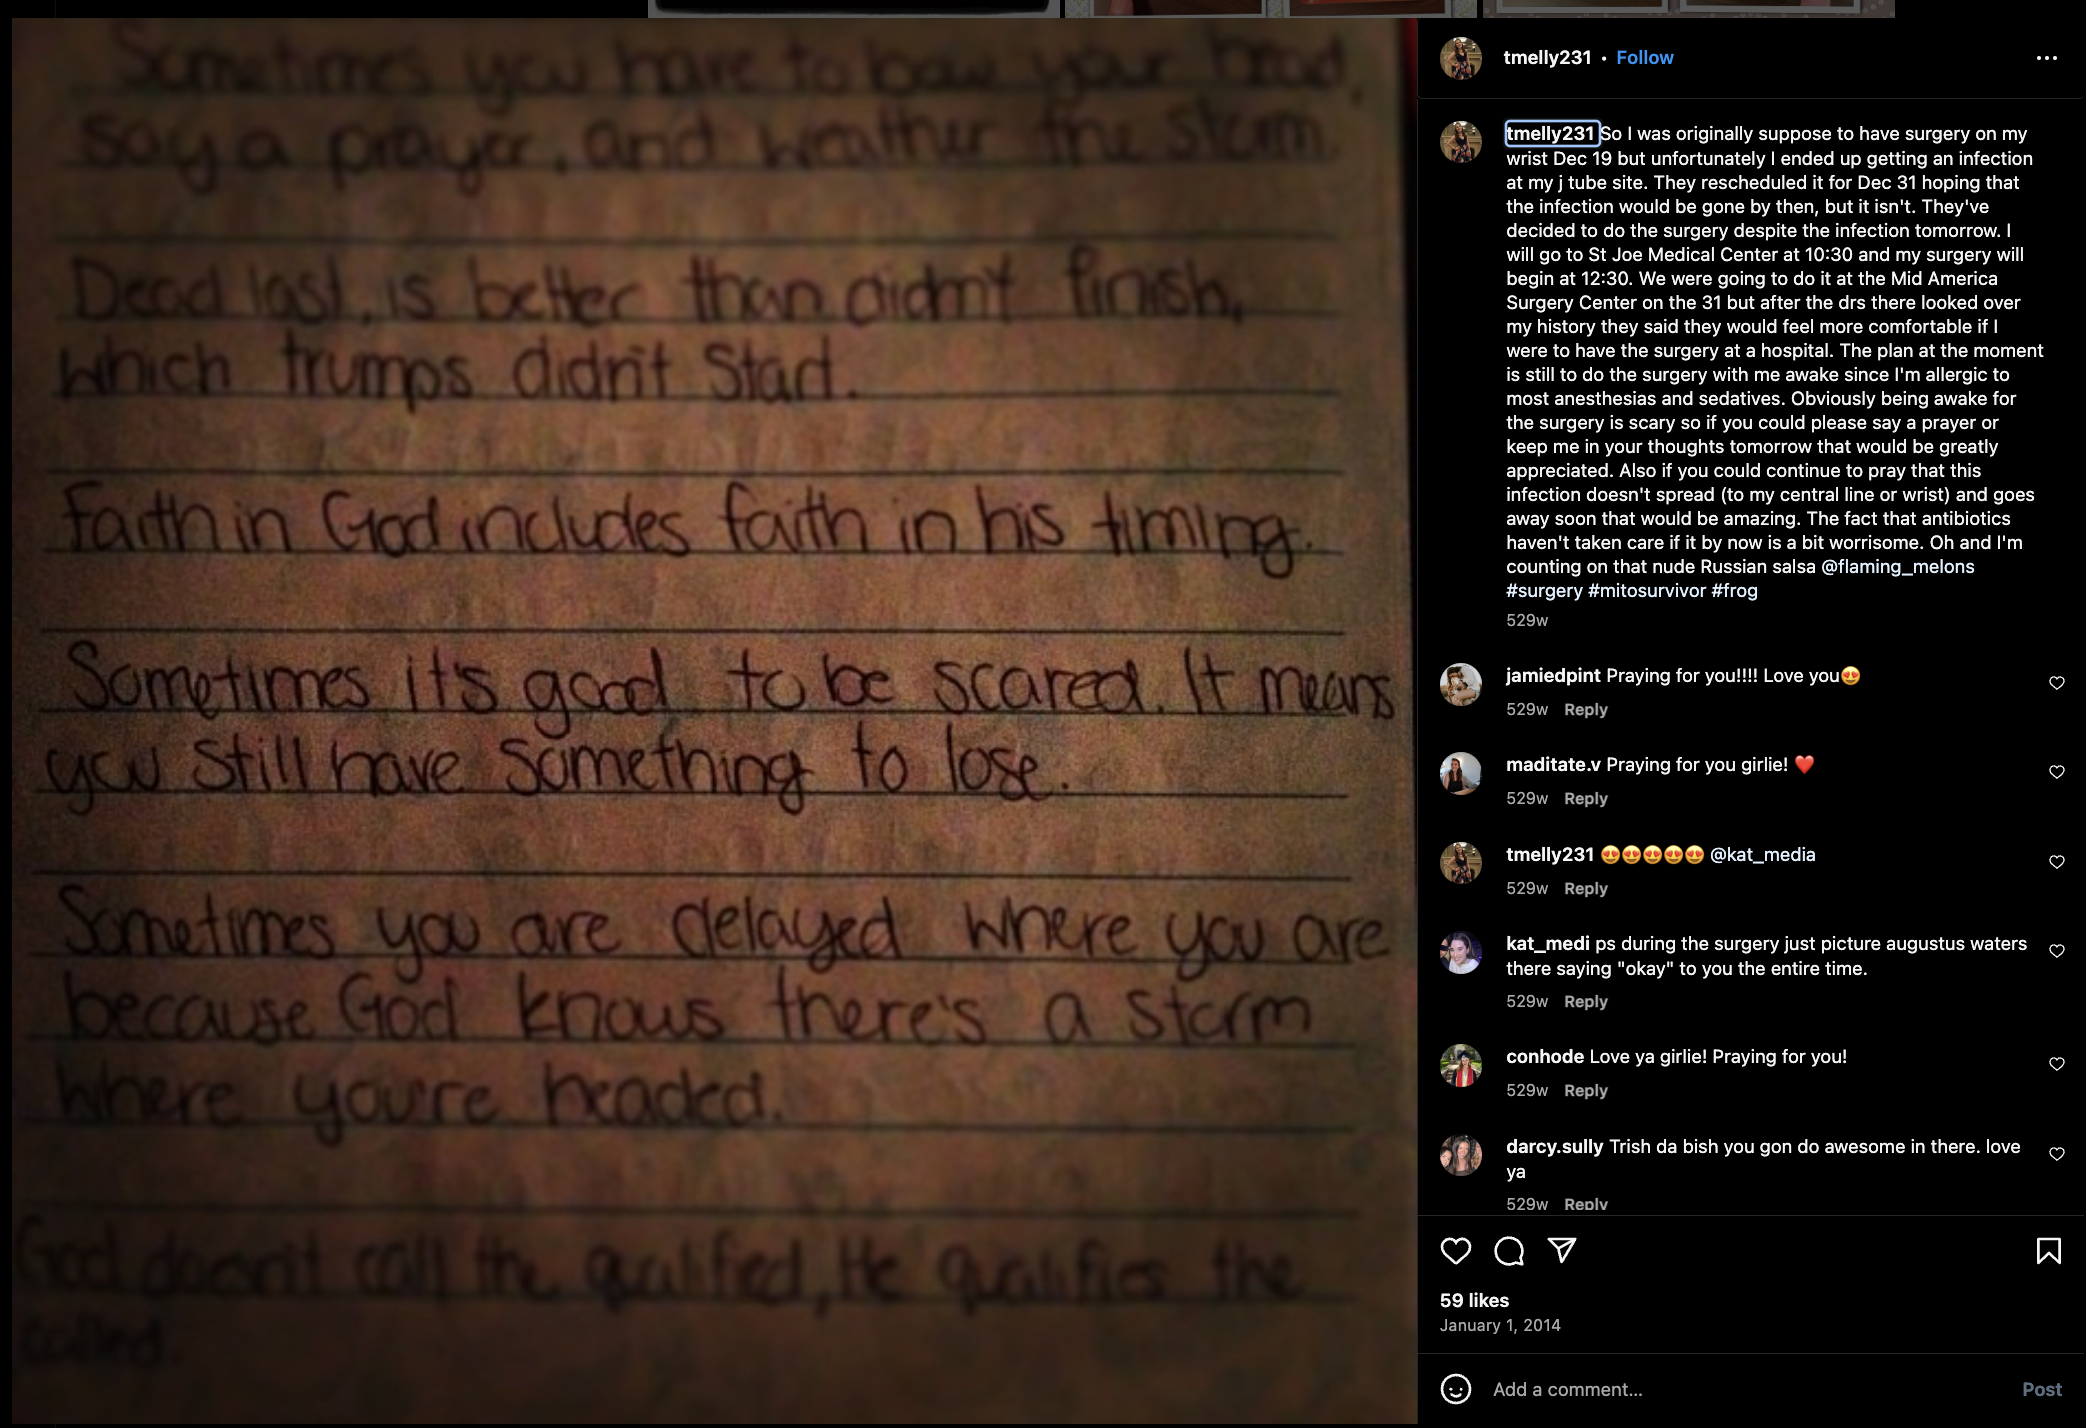 Sometimes you have to bow your head,
say a prayer, and weather the storm.
Dead last, is better than didn't finish,
which trumps didn't start.
Faith in God includes faith in his timing.
Sometimes it's good to be scared. It means
you still have something to lose.
Sometimes you are delayed where you are
because God knows there's a storm
where you're headed.
God doesn't call the qualified, He qualifies the
called.
tmelly231 • Follow
tmelly231 So I was originally suppose to have surgery on my
wrist Dec 19 but unfortunately I ended up getting an infection
at my j tube site. They rescheduled it for Dec 31 hoping that
the infection would be gone by then, but it isn't. They've
decided to do the surgery despite the infection tomorrow. I
will go to St Joe Medical Center at 10:30 and my surgery will
begin at 12:30. We were going to do it at the Mid America
Surgery Center on the 31 but after the drs there looked over
my history they said they would feel more comfortable if I
were to have the surgery at a hospital. The plan at the moment
is still to do the surgery with me awake since I'm allergic to
most anesthesias and sedatives. Obviously being awake for
the surgery is scary so if you could please say a prayer or
keep me in your thoughts tomorrow that would be greatly
appreciated. Also if you could continue to pray that this
infection doesn't spread (to my central line or wrist) and goes
away soon that would be amazing. The fact that antibiotics
haven't taken care if it by now is a bit worrisome. Oh and I'm
counting on that nude Russian salsa @flaming_melons
#surgery #mitosurvivor #frog
529w
jamiedpint Praying for you!!!! Love you😍
529w Reply
maditate.v Praying for you girlie! ❤️
529w Reply
tmelly231 😍😍😍😍😍 @kat_media
529w Reply
kat_medi ps during the surgery just picture augustus waters
there saying "okay" to you the entire time.
529w Reply
conhode Love ya girlie! Praying for you!
529w Reply
darcy.sully Trish da bish you gon do awesome in there. love
ya
529w Reply
59 likes
January 1, 2014
Add a comment...
Post